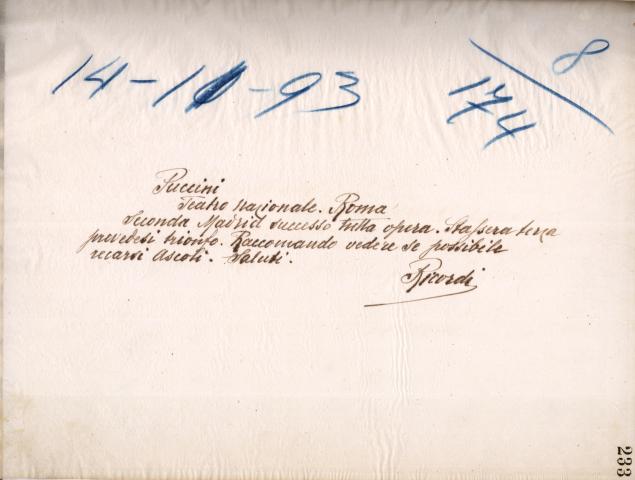 14-11-93
8
174
Puccini
Teatro Nazionale. Roma
Seconda Madrid successo tutta opera. Stassera terza
prevedesi trionfo. Raccomando vedere se possibile
recarsi Ascoli. Saluti.
Ricordi
233